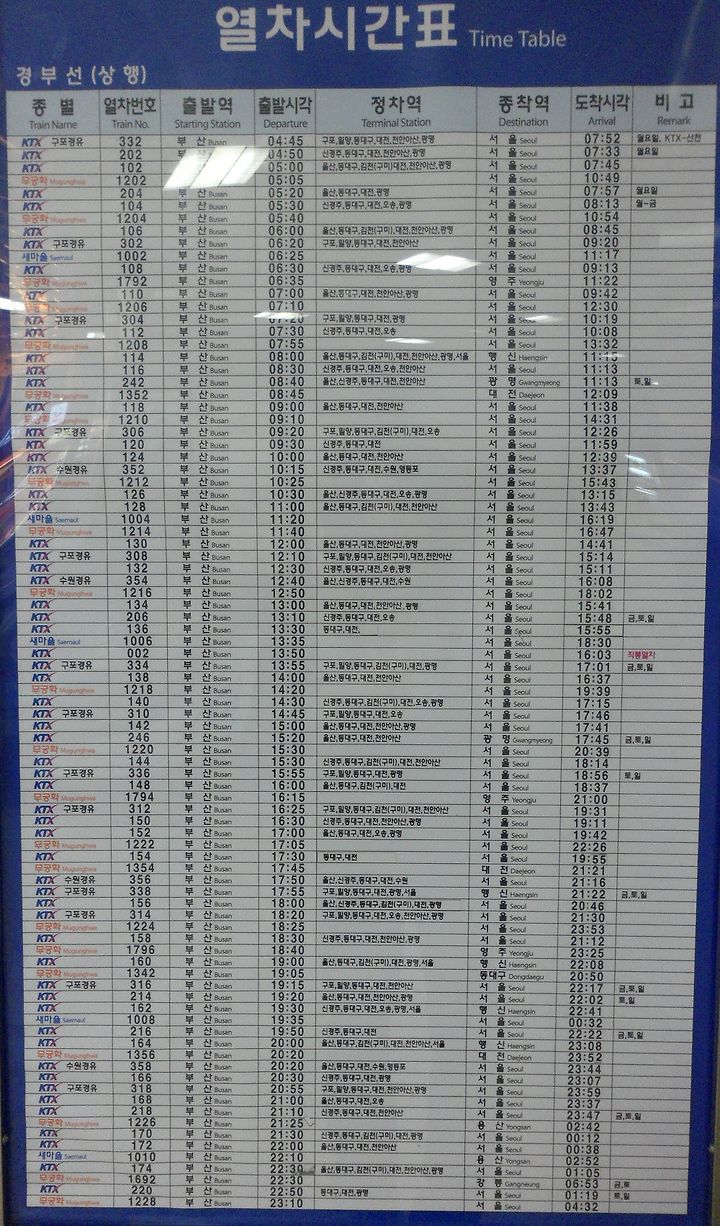 열차시간표 Time Table
경부선(상행)
종 별 열차번호 출발역 출발시각 정차역 종착역 도착시각 비 고
Train Name Train No. Starting Station Departure Terminal Station Destination Arrival Remark
KTX 구포경유 332 부 산 Busan 04:45 구포,밀양,동대구,대전,천안아산,광명 서 울 Seoul 07:52 월요일, KTX-산천
KTX 202 부 산 Busan 04:50 신경주,동대구,대전,천안아산,광명 서 울 Seoul 07:33 월요일
KTX 102 부 산 Busan 05:00 울산,동대구,김천(구미)대전,천안아산,광명 서 울 Seoul 07:45
무궁화 Mugunghwa 1202 부 산 Busan 05:05 서 울 Seoul 10:49
KTX 204 부 산 Busan 05:20 울산,동대구,대전,광명 서 울 Seoul 07:57 월요일
KTX 104 부 산 Busan 05:30 신경주,동대구,대전,오송,광명 서 울 Seoul 08:13 월~금
무궁화 Mugunghwa 1204 부 산 Busan 05:40 서 울 Seoul 10:54
KTX 106 부 산 Busan 06:00 울산,동대구,김천(구미),대전,천안아산,광명 서 울 Seoul 08:45
KTX 구포경유 302 부 산 Busan 06:20 구포,밀양,동대구,대전,천안아산 서 울 Seoul 09:20
새마을 Saemaul 1002 부 산 Busan 06:25 서 울 Seoul 11:17
KTX 108 부 산 Busan 06:30 신경주,동대구,대전,오송,광명 서 울 Seoul 09:13
무궁화 Mugunghwa 1792 부 산 Busan 06:35 영 주 Yeongju 11:22
KTX 110 부 산 Busan 07:00 울산,동대구,대전,천안아산,광명 서 울 Seoul 09:42
무궁화 Mugunghwa 1206 부 산 Busan 07:10 서 울 Seoul 12:30
KTX 구포경유 304 부 산 Busan 07:20 구포,밀양,동대구,대전,광명 서 울 Seoul 10:19
KTX 112 부 산 Busan 07:30 신경주,동대구,대전,오송 서 울 Seoul 10:08
무궁화 Mugunghwa 1208 부 산 Busan 07:55 서 울 Seoul 13:32
KTX 114 부 산 Busan 08:00 울산,동대구,김천(구미),대전,천안아산,광명,서울 행 신 Haengsin 11:15
KTX 116 부 산 Busan 08:30 신경주,동대구,대전,오송,천안아산 서 울 Seoul 11:13
KTX 242 부 산 Busan 08:40 울산,신경주,동대구,대전,천안아산 광 명 Gwangmyeong 11:13 토,일
무궁화 Mugunghwa 1352 부 산 Busan 08:45 대 전 Daejeon 12:09
KTX 118 부 산 Busan 09:00 울산,동대구,대전,천안아산 서 울 Seoul 11:38
무궁화 Mugunghwa 1210 부 산 Busan 09:10 서 울 Seoul 14:31
KTX 구포경유 306 부 산 Busan 09:20 구포,밀양,동대구,김천(구미),대전,오송 서 울 Seoul 12:26
KTX 120 부 산 Busan 09:30 신경주,동대구,대전 서 울 Seoul 11:59
KTX 124 부 산 Busan 10:00 울산,동대구,대전,천안아산 서 울 Seoul 12:39
KTX 수원경유 352 부 산 Busan 10:15 신경주,동대구,대전,수원,영등포 서 울 Seoul 13:37
무궁화 Mugunghwa 1212 부 산 Busan 10:25 서 울 Seoul 15:43
KTX 126 부 산 Busan 10:30 울산,신경주,동대구,대전,오송,광명 서 울 Seoul 13:15
KTX 128 부 산 Busan 11:00 울산,동대구,김천(구미),대전,천안아산 서 울 Seoul 13:43
새마을 Saemaul 1004 부 산 Busan 11:20 서 울 Seoul 16:19
무궁화 Mugunghwa 1214 부 산 Busan 11:40 서 울 Seoul 16:47
KTX 130 부 산 Busan 12:00 울산,동대구,대전,천안아산,광명 서 울 Seoul 14:41
KTX 구포경유 308 부 산 Busan 12:10 구포,밀양,동대구,김천(구미),대전,천안아산 서 울 Seoul 15:14
KTX 132 부 산 Busan 12:30 신경주,동대구,대전,오송,광명 서 울 Seoul 15:11
KTX 수원경유 354 부 산 Busan 12:40 울산,신경주,동대구,대전,수원 서 울 Seoul 16:08
무궁화 Mugunghwa 1216 부 산 Busan 12:50 서 울 Seoul 18:02
KTX 134 부 산 Busan 13:00 울산,동대구,대전,천안아산, 광명 서 울 Seoul 15:41
KTX 206 부 산 Busan 13:10 신경주,동대구,대전,오송 서 울 Seoul 15:48 금,토,일
KTX 136 부 산 Busan 13:30 동대구,대전, 서 울 Seoul 15:55
새마을 Saemaul 1006 부 산 Busan 13:35 서 울 Seoul 18:30
KTX 002 부 산 Busan 13:50 서 울 Seoul 16:03 직통열차
KTX 구포경유 334 부 산 Busan 13:55 구포,밀양,동대구,김천(구미),대전,광명 서 울 Seoul 17:01 금,토,일
KTX 138 부 산 Busan 14:00 울산,동대구,대전,천안아산 서 울 Seoul 16:37
무궁화 Mugunghwa 1218 부 산 Busan 14:20 서 울 Seoul 19:39
KTX 140 부 산 Busan 14:30 신경주,동대구,김천(구미),대전,오송,광명 서 울 Seoul 17:15
KTX 구포경유 310 부 산 Busan 14:45 구포,밀양,동대구,대전,오송 서 울 Seoul 17:46
KTX 142 부 산 Busan 15:00 울산,동대구,대전,천안아산,광명 서 울 Seoul 17:41
KTX 246 부 산 Busan 15:20 울산,동대구,대전,천안아산 광 명 Gwangmyeong 17:45 금,토,일
무궁화 Mugunghwa 1220 부 산 Busan 15:30 서 울 Seoul 20:39
KTX 144 부 산 Busan 15:30 신경주,동대구,김천(구미),대전,천안아산 서 울 Seoul 18:14
KTX 구포경유 336 부 산 Busan 15:55 구포,밀양,동대구,대전,광명 서 울 Seoul 18:56 토,일
KTX 148 부 산 Busan 16:00 울산,동대구,김천(구미),대전 서 울 Seoul 18:37
무궁화 Mugunghwa 1794 부 산 Busan 16:15 영 주 Yeongju 21:00
KTX 구포경유 312 부 산 Busan 16:25 구포,밀양,동대구,김천(구미),대전,천안아산 서 울 Seoul 19:31
KTX 150 부 산 Busan 16:30 신경주,동대구,대전,천안아산,광명 서 울 Seoul 19:11
KTX 152 부 산 Busan 17:00 울산,동대구,대전,오송,광명 서 울 Seoul 19:42
무궁화 Mugunghwa 1222 부 산 Busan 17:05 서 울 Seoul 22:26
KTX 154 부 산 Busan 17:30 동대구,대전 서 울 Seoul 19:55
무궁화 Mugunghwa 1354 부 산 Busan 17:45 대 전 Daejeon 21:21
KTX 수원경유 356 부 산 Busan 17:50 울산,신경주,동대구,대전,수원 서 울 Seoul 21:16
KTX 구포경유 338 부 산 Busan 17:55 구포,밀양,동대구,대전,광명,서울 행 신 Haengsin 21:22 금,토,일
KTX 156 부 산 Busan 18:00 울산,신경주,동대구,김천(구미),대전,광명 서 울 Seoul 20:46
KTX 구포경유 314 부 산 Busan 18:20 구포,밀양,동대구,대전,오송,천안아산,광명 서 울 Seoul 21:30
무궁화 Mugunghwa 1224 부 산 Busan 18:25 서 울 Seoul 23:53
KTX 158 부 산 Busan 18:30 신경주,동대구,대전,천안아산,광명 서 울 Seoul 21:12
무궁화 Mugunghwa 1796 부 산 Busan 18:40 영 주 Yeongju 23:25
KTX 160 부 산 Busan 19:00 울산,동대구,김천(구미),대전,광명,서울 행 신 Haengsin 22:08
무궁화 Mugunghwa 1342 부 산 Busan 19:05 동대구 Dongdaegu 20:50
KTX 구포경유 316 부 산 Busan 19:15 구포,밀양,동대구,대전,천안아산 서 울 Seoul 22:17 금,토,일
KTX 214 부 산 Busan 19:20 울산,동대구,대전,천안아산,광명 서 울 Seoul 22:02 토,일
KTX 162 부 산 Busan 19:30 신경주,동대구,대전,오송,광명,서울 행 신 Haengsin 22:41
새마을 Saemaul 1008 부 산 Busan 19:35 서 울 Seoul 00:32
KTX 216 부 산 Busan 19:50 신경주,동대구,대전 서 울 Seoul 22:22 금,토,일
KTX 164 부 산 Busan 20:00 울산,동대구,김천(구미),대전,천안아산,서울 행 신 Haengsin 23:08
무궁화 Mugunghwa 1356 부 산 Busan 20:20 대 전 Daejeon 23:52
KTX 수원경유 358 부 산 Busan 20:20 울산,동대구,대전,수원,영등포 서 울 Seoul 23:44
KTX 166 부 산 Busan 20:30 신경주,동대구,대전,광명 서 울 Seoul 23:07
KTX 구포경유 318 부 산 Busan 20:55 구포,밀양,동대구,대전,천안아산,광명 서 울 Seoul 23:59
KTX 168 부 산 Busan 21:00 울산,동대구,대전,오송 서 울 Seoul 23:37
KTX 218 부 산 Busan 21:10 신경주,동대구,대전,천안아산 서 울 Seoul 23:47 금,토,일
무궁화 Mugunghwa 1226 부 산 Busan 21:25 용 산 Yongsan 02:42
KTX 170 부 산 Busan 21:30 신경주,동대구,김천(구미),대전,광명 서 울 Seoul 00:12
KTX 172 부 산 Busan 22:00 울산,동대구,대전,천안아산 서 울 Seoul 00:38
새마을 Saemaul 1010 부 산 Busan 22:10 용 산 Yongsan 02:52
KTX 174 부 산 Busan 22:30 울산,동대구,김천(구미),대전,천안아산,광명 서 울 Seoul 01:05
무궁화 Mugunghwa 1692 부 산 Busan 22:30 강 릉 Gangneung 06:53 금,토
KTX 220 부 산 Busan 22:50 동대구,대전,광명 서 울 Seoul 01:19 토,일
무궁화 Mugunghwa 1228 부 산 Busan 23:10 서 울 Seoul 04:32